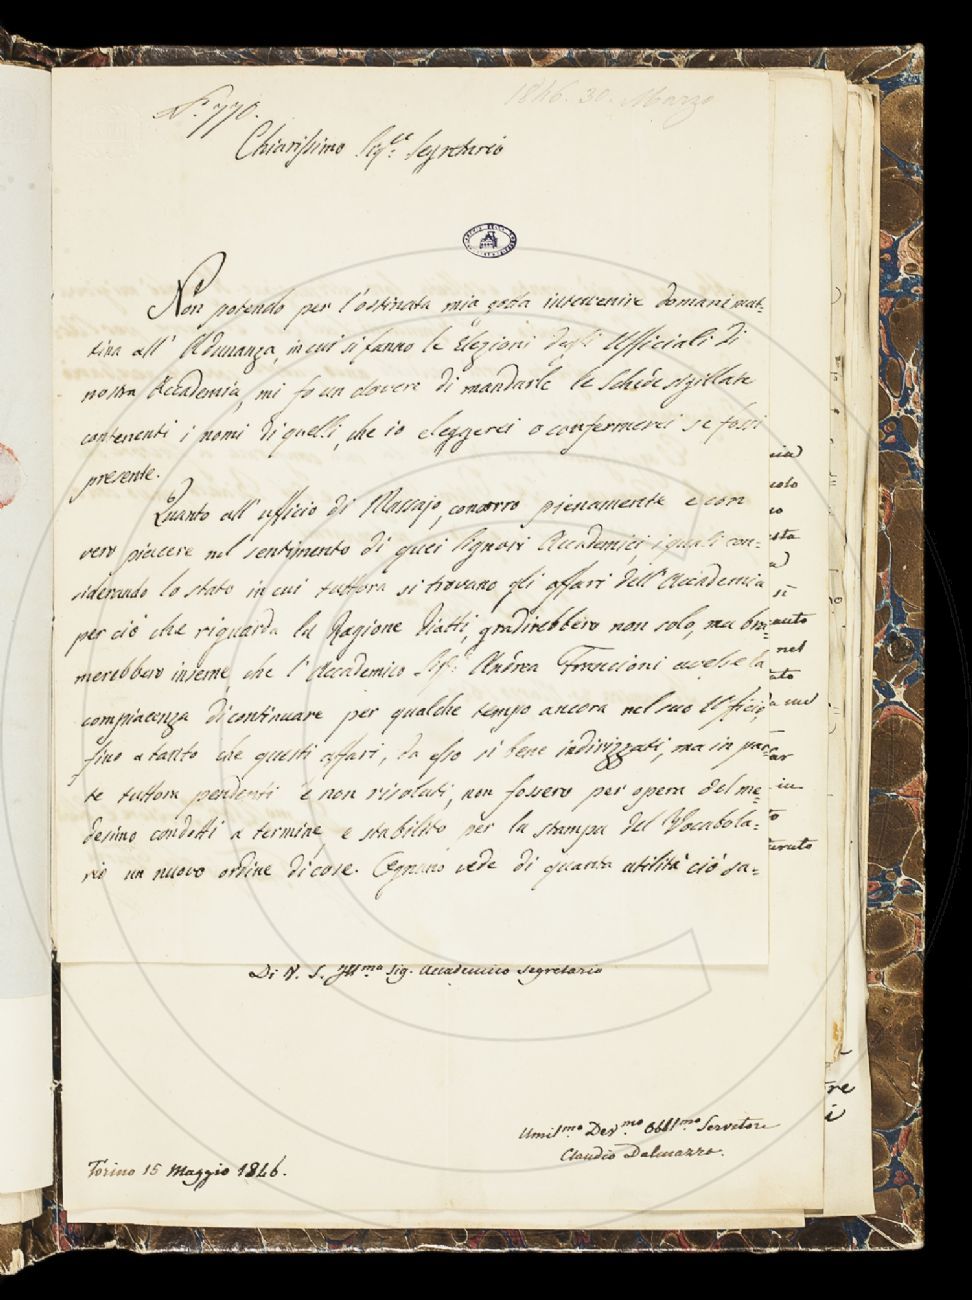 N.° 770.
1846. 30. Marzo
Chiarissimo Sig.re Segretario
Non potendo per l'ostinata mia gotta intervenire domani mat-
tina all' Adunanza, in cui si fanno le Elezioni degli Ufficiali di
nostra Accademia, mi fo un dovere di mandarle le Schede sigillate
contenenti i nomi di quelli, che io eleggerei o confermerei se fossi
presente.
Quanto all' ufficio di Massajo, concorro pienamente e con
vero piacere nel sentimento di quei Signori Accademici i quali con-
siderando lo stato in cui tuttora si trovano gli affari dell' Accademia
per ciò che riguarda la Ragione Piatti, gradirebbero non solo, ma bra-
merebbero insieme, che l' Accademico Sig.r Andrea Francioni avesse la
compiacenza di continuare per qualche tempo ancora nel suo Ufficio,
fino a tanto che questi affari, da esso sì bene indirizzati, ma in par-
te tuttora pendenti e non risoluti, non fossero per opera del me-
desimo condotti a termine, e stabilito per la stampa del Vocabola-
rio un nuovo ordine di cose. Ognuno vede di quanta utilità ciò sa-
Di V. S. Ill.ma Sig. Accademico Segretario
Umil.mo Dev.mo Obbl.mo Servitore
Claudio Dalmazzo.
Torino 15 Maggio 1846.